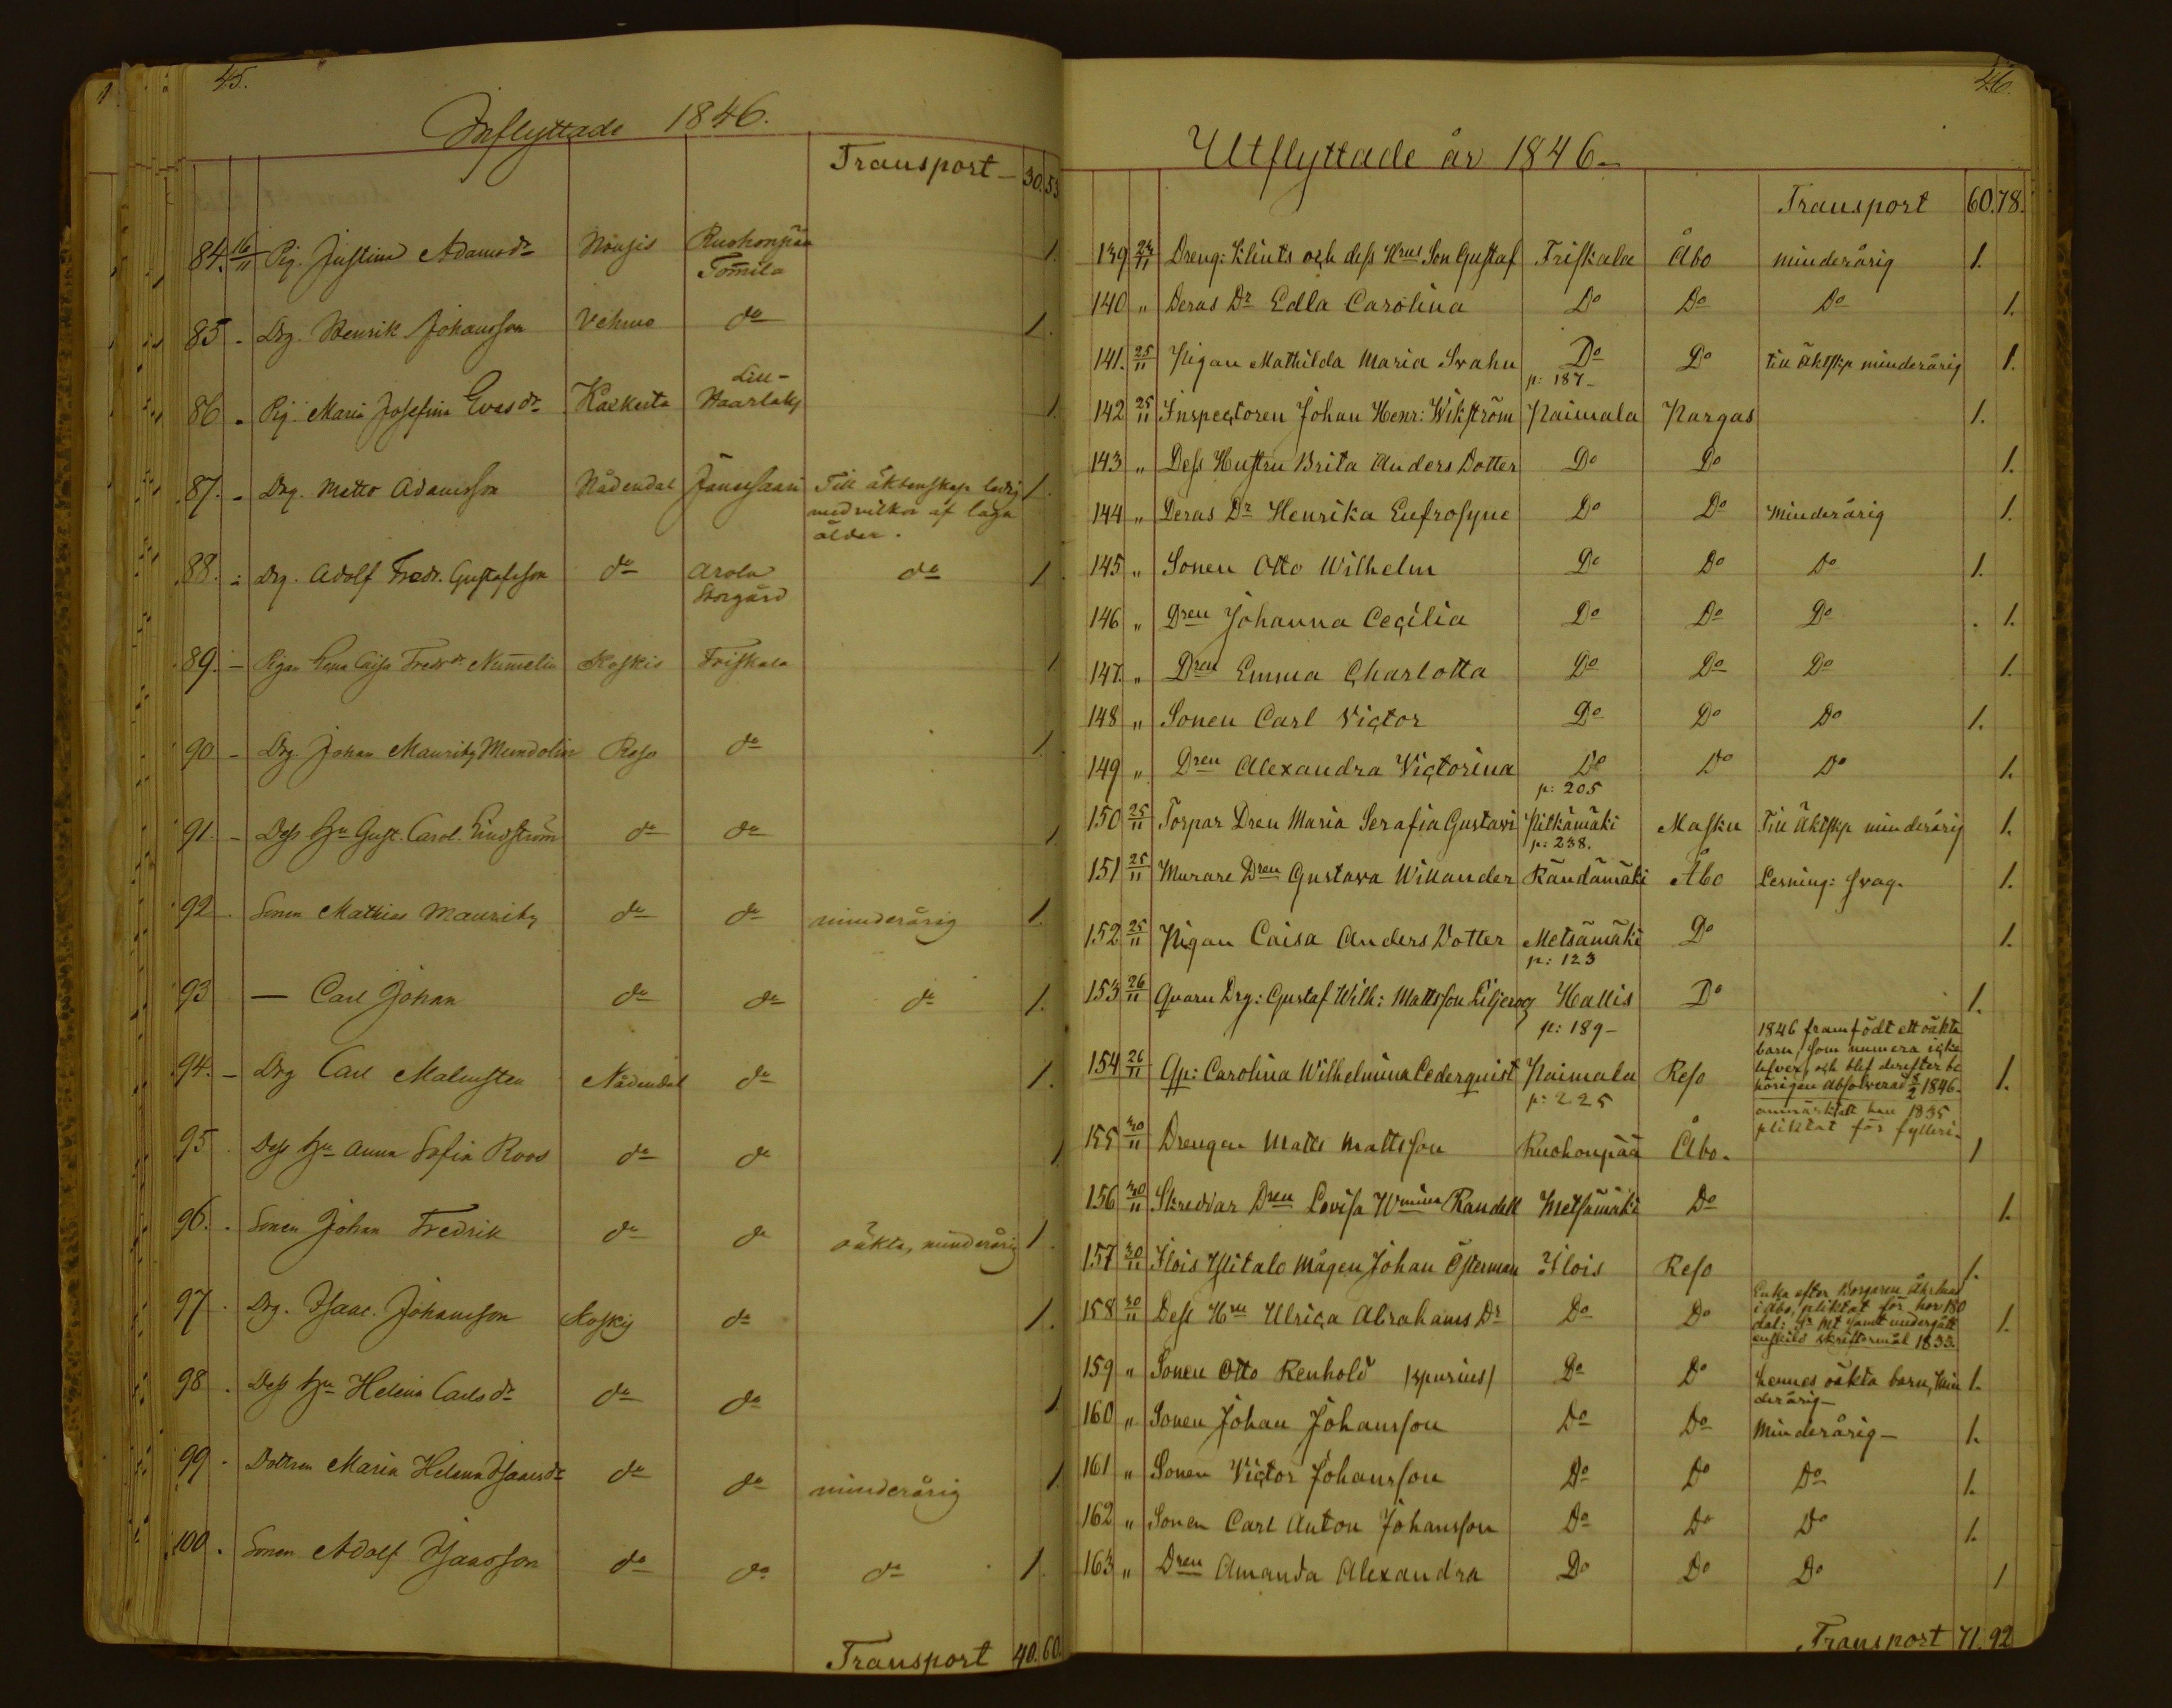 45.
Inflyttade 1846.
Transport — 30. 53
84. 16/11 Pig. Justina Adamsdr Nousis Ruohonpää 1.
Tomila
85 - Drg. Henrik Johansson Vehmo do 1.
Lill-
86 - Pig. Maria Josefina Evasdr Kakkerta Haarlaks 1.
87. - Drg. Matts Adamsson Nådendal Jänessaari Till äktenskap ledig 1.
med vilkor af laga
ålder.
88. - Drg. Adolf Fredr. Gustafsson do Arola do 1.
Storgård
89. - Pigan Lena Caisa Fredrdr Numelin Koskis Friskala 1
90 - Drg. Johan Mauritz Mendolin Reso do 1.
91. - Dess hu Gust. Carol. Lindström do do 1.
92 . Sonen Mathias Mauritz do do minderårig 1.
93 . — Carl Johan do do do 1.
94. - Drg Carl Malmsten Nådendal do 1.
95 . Dess hu Anna Sofia Roos do do 1.
96. . Sonen Johan Fredrik do do oäkta, minderårig 1.
97 . Drg. Isaac Johansson Koskis do 1.
98 . Dess hu Helena Carlsdr do do 1.
99 . Dottren Maria Helena Isaacsdr do do minderårig 1.
100 . Sonen Adolf Isaacsson do do do 1.
Transport 40. 60.
46.
Utflyttade år 1846.
Transport 60. 78.
139 23/11 Dreng: Klints och dess Hrus Son Gustaf Friskala Åbo minderårig 1.
140 " Deras Dr Edla Carolina Do Do Do 1.
141. 25/11 Pigan Mathilda Maria Svahn Do Do till Äktskp minderårig 1.
p: 187-
142 25/11 Inspectoren Johan Henr: Wikström Raimala Pargas 1.
143 " Dess Hustru Brita Anders Dotter Do Do 1.
144 " Deras Dr Henrika Eufrosyne Do Do Minderårig 1.
145 " Sonen Otto Wilhelm Do Do Do 1.
146 " Dren Johanna Cecilia Do Do Do 1.
147. " Dren Emma Charlotta Do Do Do 1.
148 " Sonen Carl Victor Do Do Do 1.
149 " Dren Alexandra Victorina Do Do Do 1.
p: 205
150 25/11 Torpar Dren Maria Serafia Gustavi Pitkämäki Masku Till Äktskp minderårig 1.
p: 238.
151 25/11 Murare Dren Gustava Willander Räntämäki Åbo Lesning: svag. 1.
152 25/11 Pigan Caisa Anders Dotter Metsämäki Do 1.
p: 123
153 26/11 Qvarn Drg: Gustaf Wilh: Mattsson Liljeroos Hallis Do 1.
p: 189-
1846 framfödt ett oäkta
barn, som numera icke
154 26/11 Qp: Carolina Wilhelmina Cederquist Raimala Reso lefver, och blef derefter be 1.
hörigen absolverad 1846.
p: 225
anmärktatt han 1835
pliktat för fylleri.
155 30/11 Drengen Matts Mattsson Ruohonpää Åbo. 1
156 30/11 Skreddar Dren Lovisa Wmina Randell Metsämäki Do 1.
157 30/11 Ilois Ylitalo Mågen Johan Österman Ilois Reso 1.
Enka efter Borgaren
i Åbo, pliktat för hor 180
158 30/11 Dess Hru Ulrica Abrahams Dr Do Do dal: Sr Mt samt undergått 1.
enskild skriftermål 1833.
159 " Sonen Otto Renhold /spurius/ Do Do hennes oäkta barn, Min 1.
derårig—
160 " Sonen Johan Johansson Do Do Minderårig— 1.
161 " Sonen Victor Johansson Do Do Do 1.
162 " Sonen Carl Anton Johansson Do Do Do 1.
163 " Dren Amanda Alexandra Do Do Do 1
Transport 71. 92